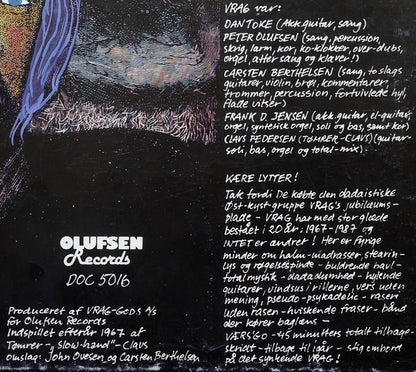 VRAG var:
DAN TOKE (Akk.guitar, sang)
PETER OLUFSEN (sang, percussion,
skrig, larm, kor, ko-klokker, over-dubs,
orgel, atter sang og klaver!)
CARSTEN BERTHELSEN (sang, to slags
guitarer, violin, brøl, kommentarer,
trommer, percussion, fortvivlede hyl,
flade vitser)
FRANK D. JENSEN (akk.guitar, el-guitar,
orgel, syntetisk orgel, soli og bas, samt kor)
CLAVS PEDERSEN (TØMRER-CLAVS) (guitar-
soli, bas, orgel og total-mix).
KÆRE LYTTER!
Tak fordi De købte den dadaistiske
Øst-kyst-gruppe VRAG's jubilæums-
plade - VRAG har med stor glæde
bestået i 20 år: 1967-1987 og
INTET er ændret! Her er fyrige
minder om halm-madrasser, stearin-
lys og røgelsespinde - buldrende havl-
total mystik - dadadumhed - hylende
guitarer, vindsus i rillerne, vers uden
mening, pseudo-psykadelic - rasen
uden rasen - hviskende fraser - bånd
der kører baglæns
VÆRSGO - 45 minutters totalt tilbage-
skridt - tilbage til igår - stig ombord
på det synkende VRAG!
OLUFSEN
Records
DOC 5016
Produceret af VRAG-GODS A/S
for Olufsen Records
Indspillet efterår 1967 af
Tømrer-"slow-hand"-Clavs
Omslag: John Ovesen og Carsten Berthelsen